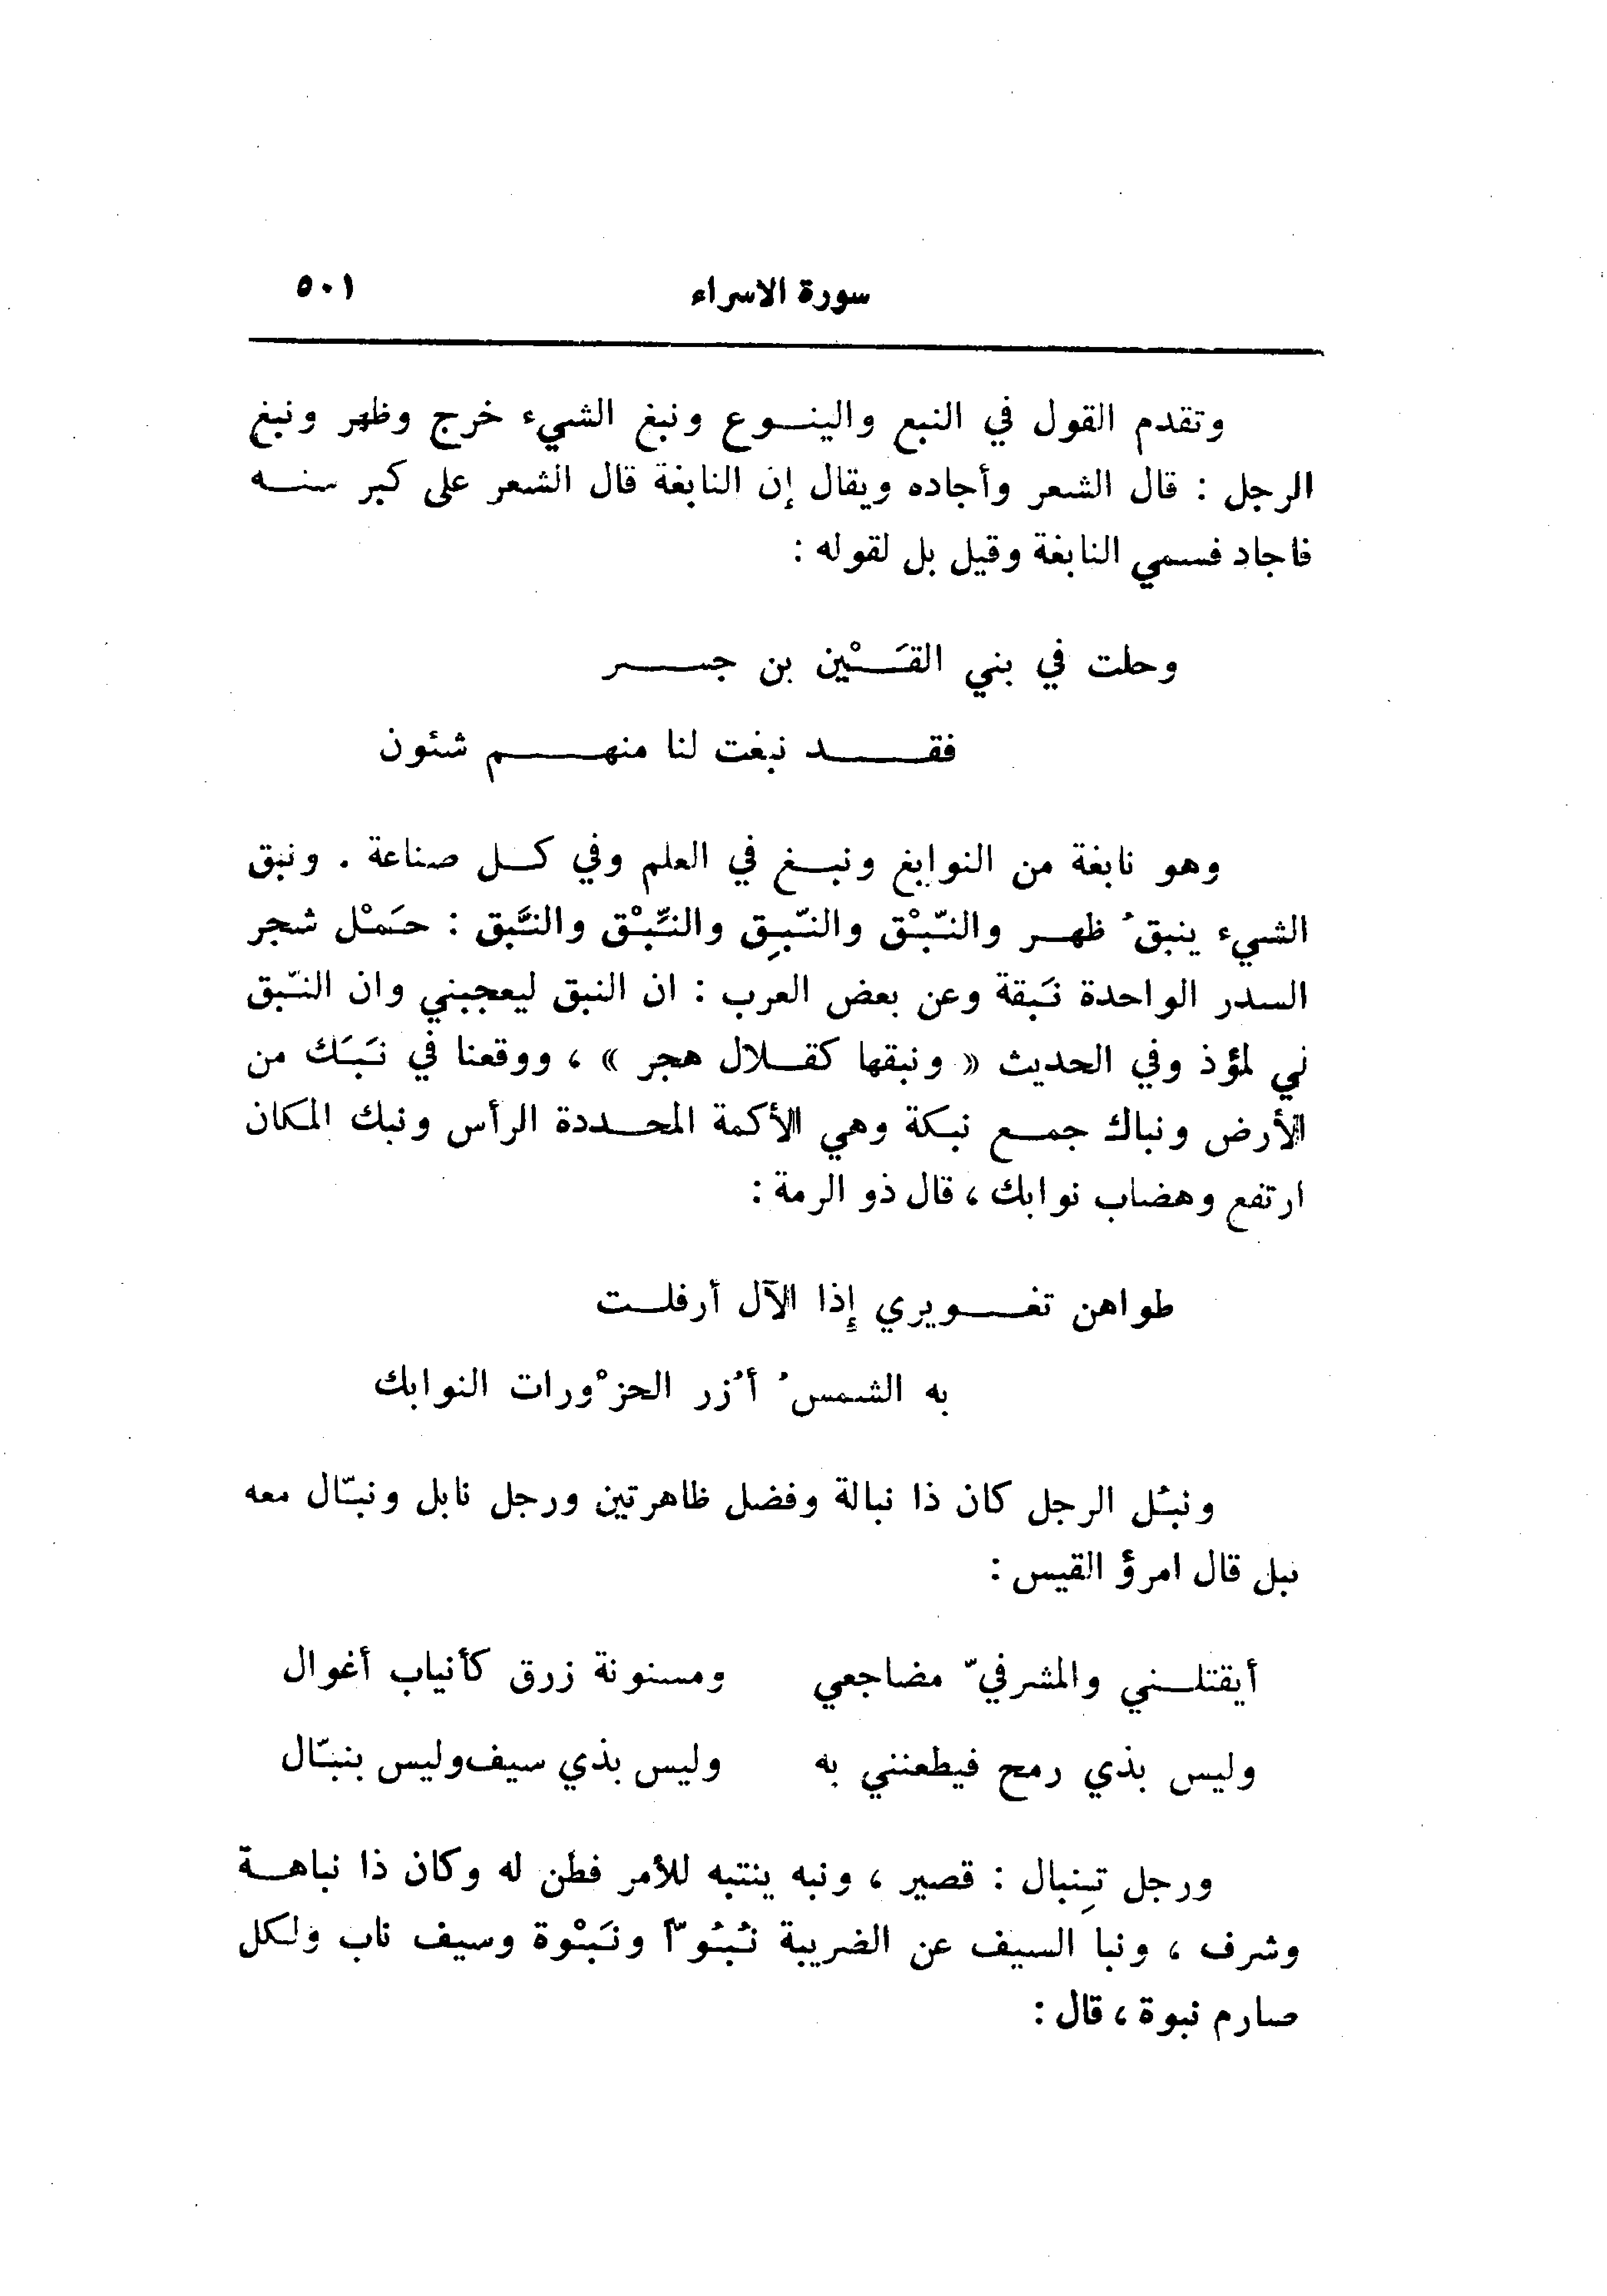 سورة الاسراء ٥٠١
وتقدم القول في النبع والينوع ونبغ الشيء خرج وظهر ونبغ
الرجل : قال الشعر وأجاده ويقال إن النابغة قال الشعر على كبر سنه
فاجاد فسمي النابغة وقيل بل لقوله :
وحلت في بني القَيْن بن جسر
فقد نبغت لنا منهم شئون
وهو نابغة من النوابغ ونبغ في العلم وفي كل صناعة . ونبق
الشيء ينبقُ ظهر والنّبْق والنّبِق والنِّبْق والنَّبق : حَمْل شجر
السدر الواحدة نَبقة وعن بعض العرب : ان النبق ليعجبني وان النّبق
ني لمؤذ وفي الحديث « ونبقها كقلال هجر » ، ووقعنا في نَبَك من
الأرض ونباك جمع نبكة وهي الأكمة المحددة الرأس ونبك المكان
ارتفع وهضاب نوابك ، قال ذو الرمة :
طواهن تغويري إذا الآل أرفلت
به الشمسُ أُزر الحزْورات النوابك
ونبُل الرجل كان ذا نبالة وفضل ظاهرتين ورجل نابل ونبّال معه
نبل قال امرؤ القيس :
أيقتلني والمشرفيّ مضاجعي ومسنونة زرق كأنياب أغوال
وليس بذي رمح فيطعنني به وليس بذي سيف وليس بنبّال
ورجل تِنبال : قصير ، ونبه ينتبه للأمر فطن له وكان ذا نباهة
وشرف ، ونبا السيف عن الضريبة نُبُوّاً ونَبْوة وسيف ناب ولكل
صارم نبوة ، قال :